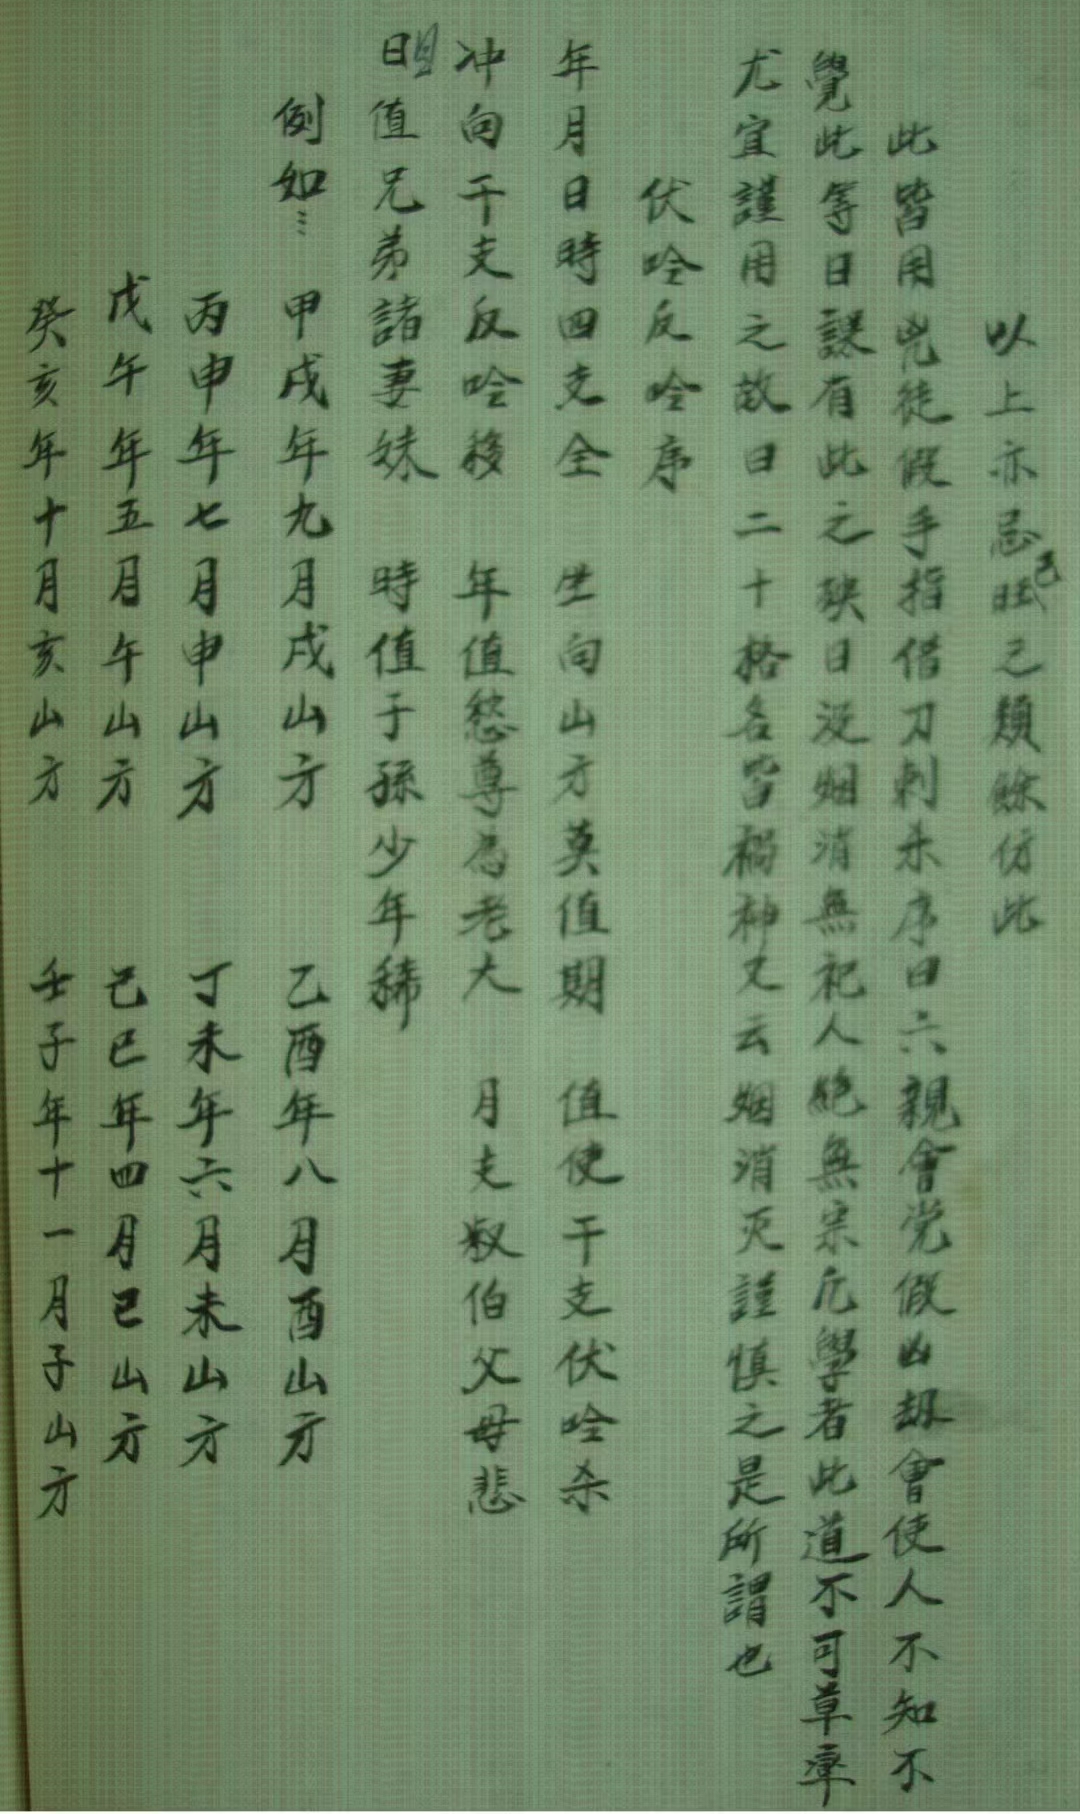 以上亦忌旺己之類餘仿此
此皆用兇徒假手指借刀刺杀序曰六親會党假凶劫會使人不知不
覺此等日課有此之殃日没烟消無祀人絶無宗凢學者此道不可草率
尤宜謹用之故曰二十格名皆禍神又云烟消灭謹慎之是所謂也
伏吟反吟序
年月日時四支全 坐向山方莫值期 值使干支伏吟杀
冲向干支反吟移 年值愁尊為老大 月支叔伯父母悲
日值兄弟諸妻妹 時值子孫少年稀
例如… 甲戌年九月戌山方 乙酉年八月酉山方
丙申年七月申山方 丁未年六月未山方
戊午年五月午山方 己巳年四月巳山方
癸亥年十月亥山方 壬子年十一月子山方